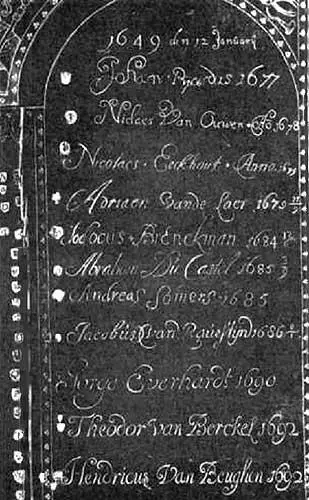 1649 den 12 Januarij
Johan Rycardis 1677
Niclaes Van Ouwen 1678
Nicolaes Eeckhout Anno 1677
Adriaen Vande Laer 1679
Jodocus Brenckman 1684
Abraham Du Castel 1685
Andreas Somers 1685
Jacobus van 1686
Everhardt 1690
Theodor van Berckel 1692
Hendricus Van Beughen 1692